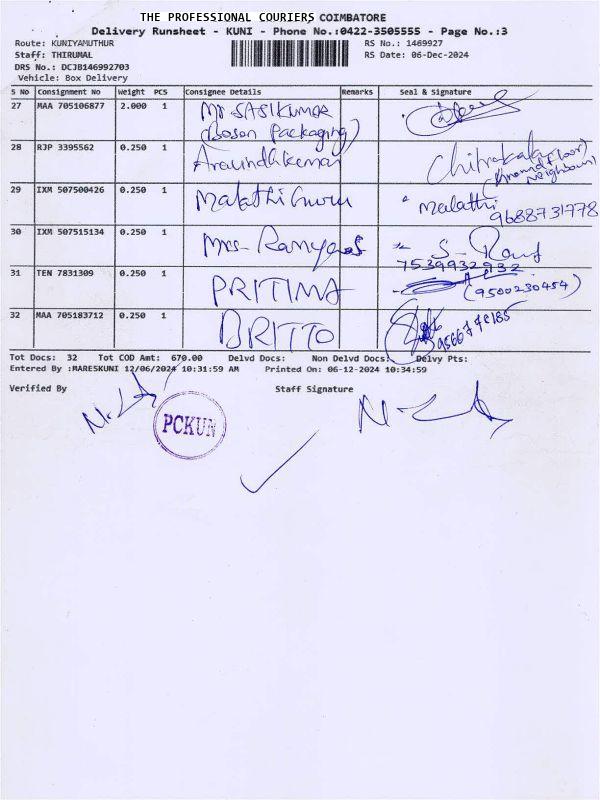 THE PROFESSIONAL COURIERS COIMBATORE
Delivery Runsheet - KUNI - Phone No.:0422-3505555 - Page No.:3
Route: KUNIYAMUTHUR RS No.: 1469927
Staff: THIRUMAL RS Date: 06-Dec-2024
DRS No.: DCJB146992703
Vehicle: Box Delivery
S No Consignment No Weight PCS Consignee Details Remarks Seal & Signature
27 MAA 705106877 2.000 1 Mr SASIKUMAR
(Boson Packaging)
28 RJP 3395562 0.250 1 Aravindhkumar Chitrakala
(Ground floor)
Neighbour
29 IXM 507500426 0.250 1 Malathi Malathi
9688731778
30 IXM 507515134 0.250 1 Mrs- Ramya S-
7539932932
31 TEN 7831309 0.250 1 PRITIMA (9500230454)
32 MAA 705183712 0.250 1 BRITTO
Tot Docs: 32 Tot COD Amt: 670.00 Delvd Docs: Non Delvd Docs: Delvy Pts:
Entered By :MARESKUNI 12/06/2024 10:31:59 AM Printed On: 06-12-2024 10:34:59
Verified By Staff Signature
PCKUN